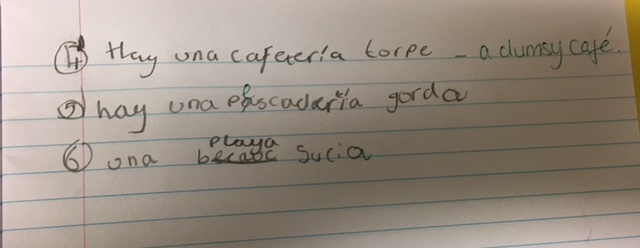 4 Hay una cafetería torpe - a clumsy café.
5) hay una pescadería gorda
playa
6) una sucia